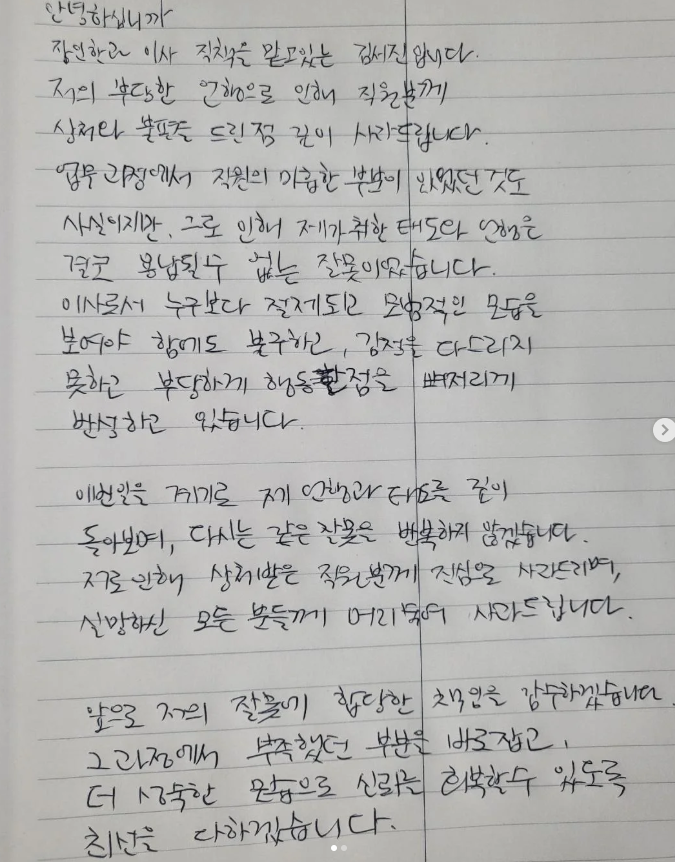 안녕하십니까
장인한과 이사 직책을 맡고있는 김서진입니다.
저의 부당한 언행으로 인해 직원분께
상처와 불편을 드린점 깊이 사과드립니다.
업무 과정에서 직원의 미흡한 부분이 있었던 것도
사실이지만, 그로 인해 제가 취한 태도와 언행은
결코 용납될수 없는 잘못이었습니다.
이사로서 누구보다 절제되고 모범적인 모습을
보여야 함에도 불구하고, 감정을 다스리지
못하고 부당하게 행동한점을 뼈저리게
반성하고 있습니다.
이번일을 계기로 제 언행과 태도를 깊이
돌아보며, 다시는 같은 잘못을 반복하지 않겠습니다.
저로인해 상처받은 직원분께 진심으로 사과드리며,
실망하신 모든 분들께 머리숙여 사과드립니다.
앞으로 저의 잘못에 합당한 책임을 감수하겠습니다
그과정에서 부족했던 부분을 바로잡고,
더 성숙한 모습으로 신뢰를 회복할수 있도록
최선을 다하겠습니다.